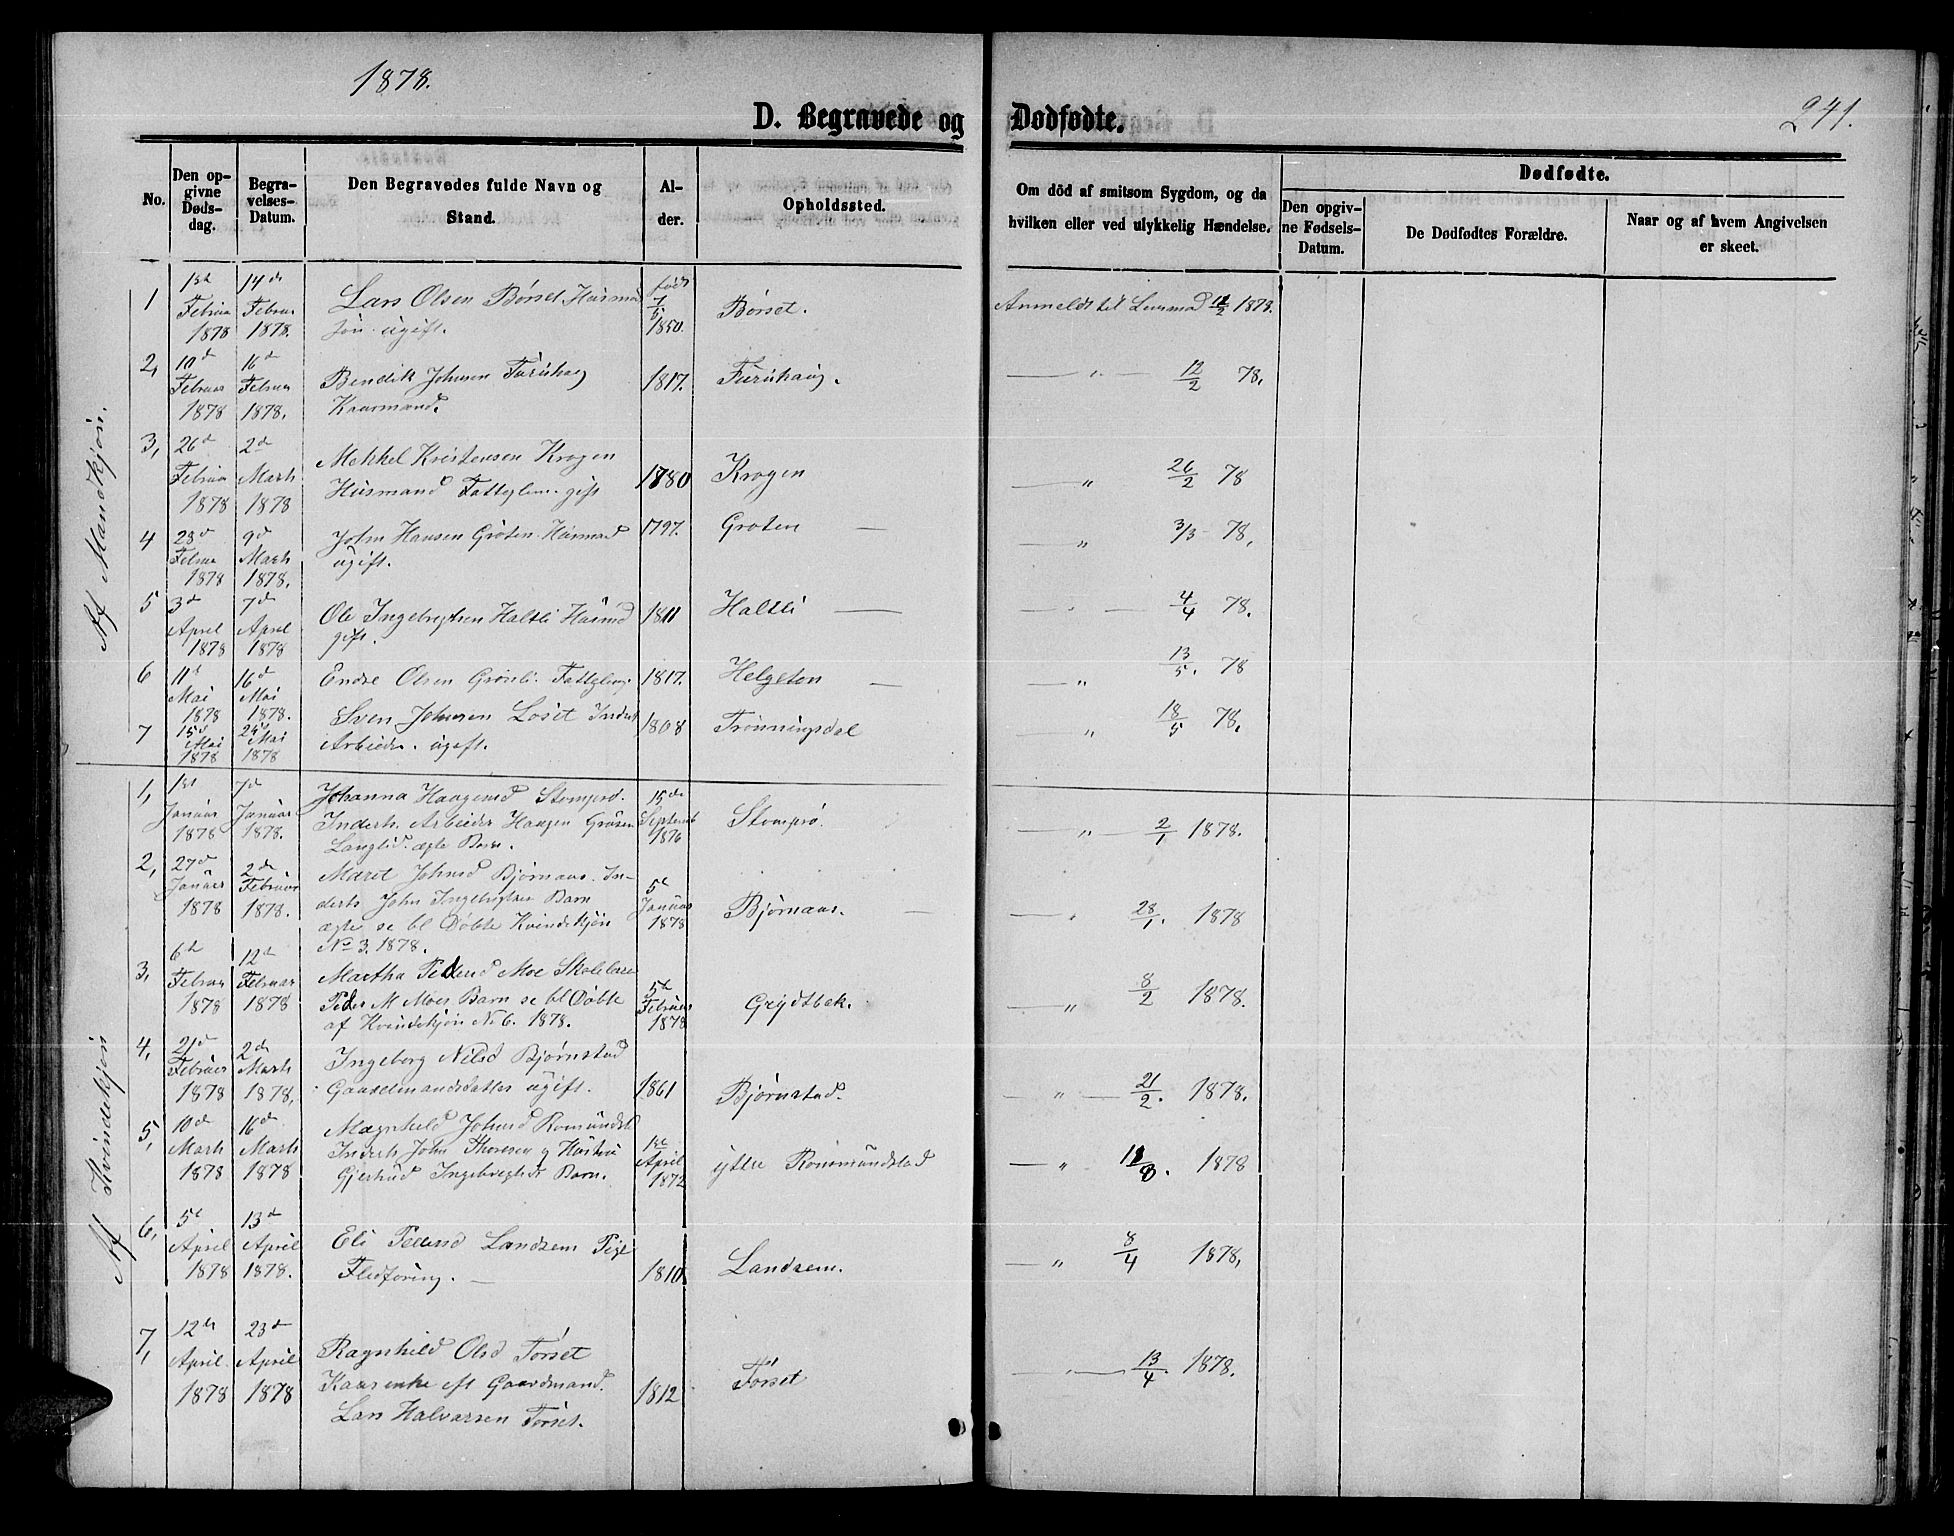 1878.
D. Begravede og Dødfødte.
241.
No.
Den opgivne Døds-dag.
Begravelses-Datum.
Den Begravedes fulde Navn og Stand.
Alder.
Opholdssted.
Om död af smitsom Sygdom, og da hvilken eller ved ulykkelig Hændelse.
Dødfødte.
Den opgivne Fødsels-Datum.
De Dødfødtes Forældre.
Naar og af hvem Angivelsen er skeet.
Af Mandkjøn.
1 1ste Februar 1878 14de Februar 1878. Lars Olsen Børset født 7/5 1850. Børset. Anmeldt til 1878.
ugift.
2, 10de Februar 1878 16de Februar 1878. Bendik Johnsen Furuhaug 1817. Furuhaug. — " — 12/2 78.
Kaarmand.
3, 26de Februar 1878 2de Marts 1878 Mekkel Kristensen Krogen 1780 Krogen — " 26/2 78
Husmand Fattiglem. gift
4 9de Marts 1878. John Hansen Groten Husmand 1797. Groten — — " 3/3 - 78.
ugift.
5 3de April 1878 7de April 1878 Ole Ingebrigtsen Haltli Husmd 1811 Haltli — — " — 4/4 78.
gift.
6 11te Mai 1878 16de Mai 1878. Endre Olsen Grønli 1817. Helgeton — — " 13/5. 78
7 15de Mai 1878 Mai 1878 Sven Johnsen Loset Inderst 1808 Trønningsdal — " 18/5 78.
Arbeider. ugift.
Af Kvindekjøn
1, 1ste Januar 1878 7de Januar 1878. Johanna Haagensd 15de September 1876 Stomprø. — " — 2/1 1878.
Inderst. Arbeider Haagen
ægte Barn.
2, 27de Januar 1878 2de Februar 1878. Maret Johnsd Bjørnaas. In- 5te Januar 1878 Bjørnaas. — — " 28/1. 1878
derst John Ingebrigtsen Barn
ægte se bl Døbte Kvindekjøn
No 3. 1878.
3, 6te Februar 1878 12te Februar 1878 Martha Pedersd Moe Skolelærer 5te Februar 1878 Grydtbak. — " 8/2 1878.
Peder M Moes Barn se bl Døbte
af Kvindekjøn No 6. 1878.
4, 21de Februar 1878 2de Marts 1878, Ingeborg Nilsd Bjørnstad 1861 Bjørnstad. — " — 21/2. 1878.
Gaardmandsdatter ugift.
5, 10de Marts 1878 16de Marts 1878 Magnhild Johnsd Romundst 1ste April 1872 ytre Rommundstad — " 1878
Inderst John Thoresen og Hustru
Gjertrud Ingebrigtsdr Barn.
6, 5te April 1878 13de April 1878. Eli Pedersd Landsem Pige 1810. Landsem. — " 8/4 1878,
Fledføring. —
7, 12te April 1878 23de April 1878 Ragnhild Olsd Torset 1812 Tørset — " — 13/4. 1878.
Kaarenke eft Gaardmand.
Lars Halvorsen Tørset.